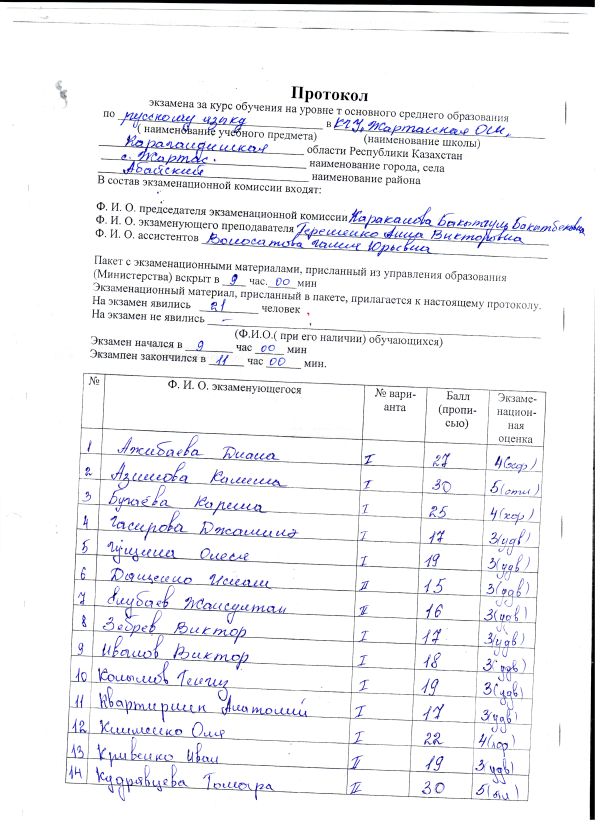 Протокол
экзамена за курс обучения на уровне т основного среднего образования
по русскому языку в КГУ, Жартасская ОШ,
( наименование учебного предмета) (наименование школы)
Карагандинская области Республики Казахстан
с. Жартас. наименование города, села
Абайский наименование района
В состав экзаменационной комиссии входят:
Ф. И. О. председателя экзаменационной комиссии Каракалова Бакытгуль
Ф. И. О. экзаменующего преподавателя Терещенко Анна Викторовна
Ф. И. О. ассистентов Волосатова Галия Юрьевна
Пакет с экзаменационными материалами, присланный из управления образования
(Министерства) вскрыт в 9 час. 00 мин
Экзаменационный материал, присланный в пакете, прилагается к настоящему протоколу.
На экзамен явились 21 человек ,
На экзамен не явились -
(Ф.И.О.( при его наличии) обучающихся)
Экзамен начался в 9 час 00 мин
Экзампен закончился в 11 час 00 мин.
№ Ф. И. О. экзаменующегося № вари-анта Балл (пропи-сью) Экзаме-национ-ная оценка
1 Ажибаева Диана I 27 4(хор)
2 Азимова Камила I 30 5(отл)
3 Бугаёва Карина I 25 4(хор)
4 Гасирова Джамиля I 17 3(удв)
5 Гущина Олеся I 19 3(удв)
6 Дащенко II 15 3(удв)
7 Елубаев Жансултан II 16 3(удв)
8 Зебрев Виктор I 17 3(удв)
9 Иванов Виктор I 18 3(удв)
10 Калымов Генгиз I 19 3(удв)
11 Анатолий I 17 3(удв)
12 Клименко Оля I 22 4(хор)
13 Кривенко Иван II 19 3(удв)
14 Кудрявцева Томара II 30 5(отл)